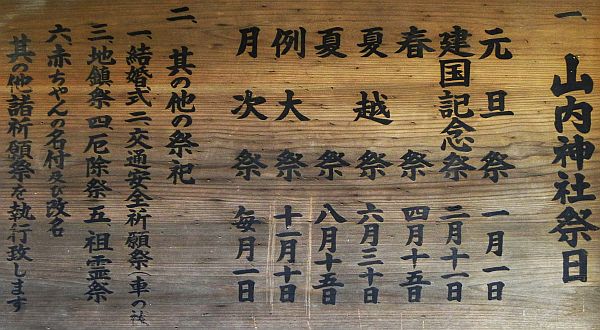 一、山内神社祭日
元旦祭 一月一日
建国記念祭 二月十一日
春祭 四月十五日
夏越祭 六月三十日
夏祭 八月十五日
例大祭 十一月十日
月次祭 毎月一日
二、其の他の祭祀
一、結婚式 二、交通安全祈願祭(車の
三、地鎮祭 四、厄除祭 五、祖霊祭
六、赤ちゃんの名付及び改名
其の他諸祈願祭を執行致します